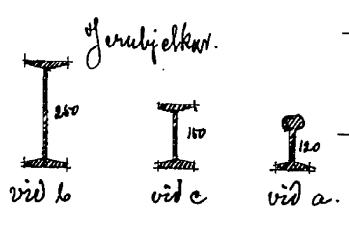 Jernbjelkar.
250
160
120
við b
við c
við a.